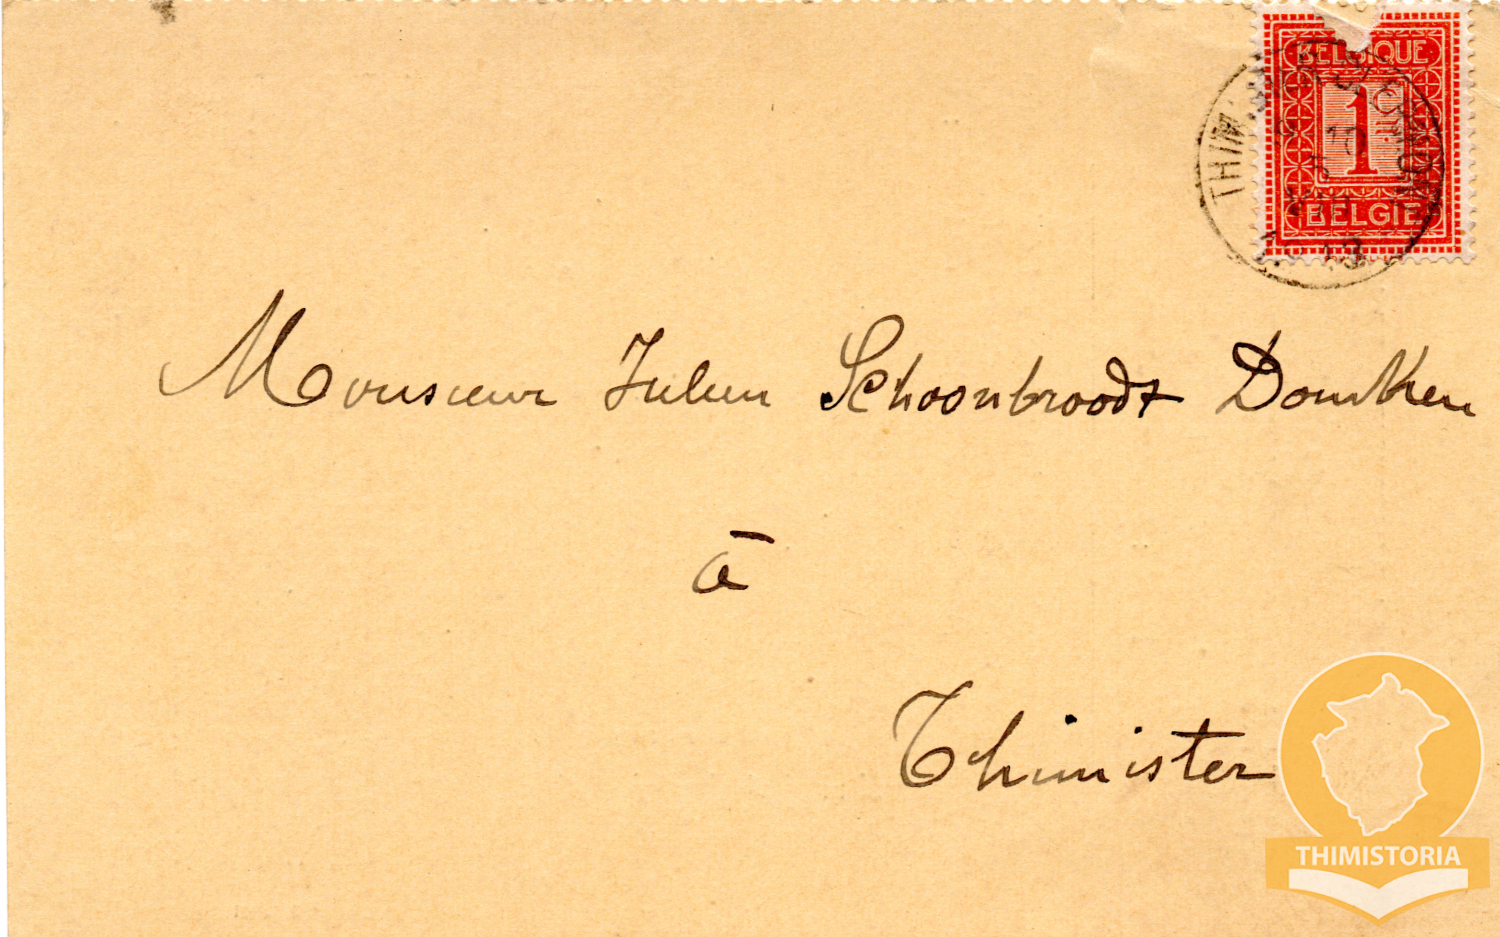 BELGIQUE
1
BELGIË
THIM
10
13
Monsieur Julien Schoonbroodt Domken
à
Thimister
THIMISTORIA